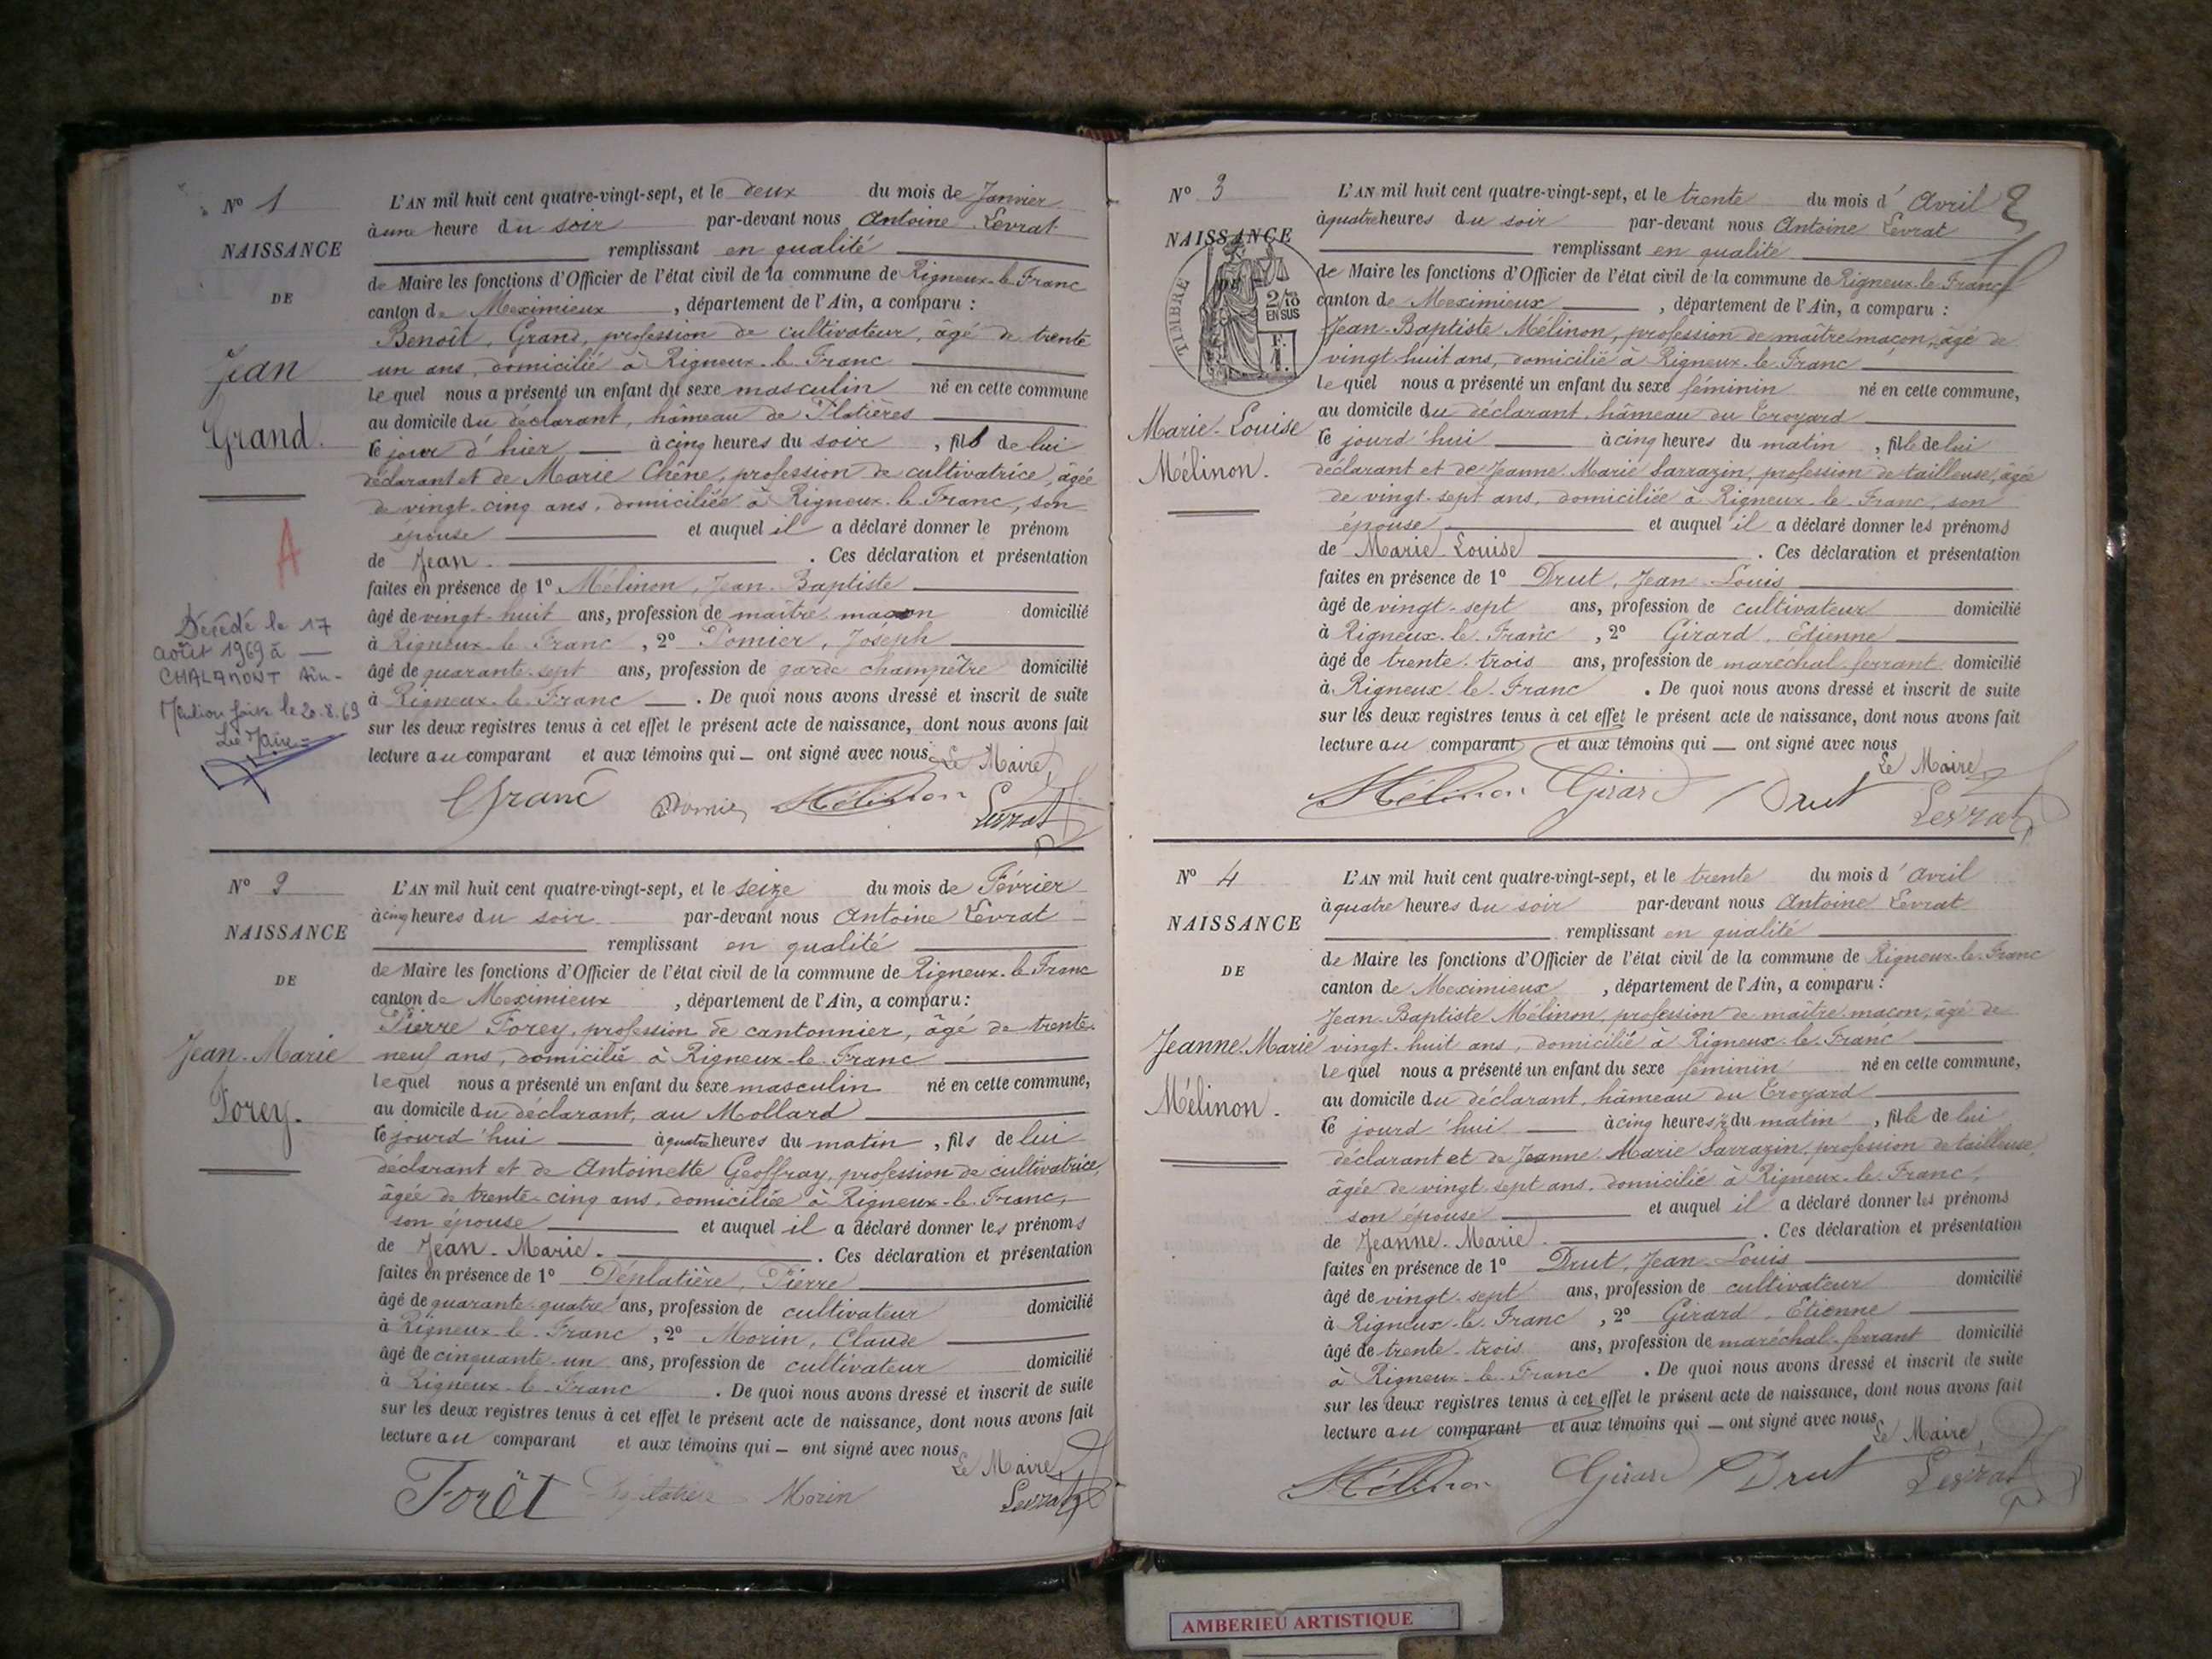 N° 1
NAISSANCE
DE
Jean
Grand.
A
Décédé le 17
août 1969 à
CHALAMONT Ain-
Mention faite le 20.8.69
Le Maire
L'AN mil huit cent quatre-vingt-sept, et le deux du mois de Janvier
à une heure du soir par-devant nous Antoine Levrat
remplissant en qualité
de Maire les fonctions d'Officier de l'état civil de la commune de Rigneux-le-Franc
canton de Meximieux, département de l'Ain, a comparu :
Benoît, Grand, profession de cultivateur, âgé de trente
un ans, domicilié à Rigneux-le-Franc
Lequel nous a présenté un enfant du sexe masculin né en cette commune
au domicile du déclarant, hâmeau de Platières
le jour d'hier à cinq heures du soir, fils de lui
déclarant et de Marie Chêne, profession de cultivatrice, âgée
de vingt-cinq ans, domiciliée à Rigneux-le-Franc, son
épouse et auquel il a déclaré donner le prénom
de Jean. Ces déclaration et présentation
faites en présence de 1° Mélinon, Jean-Baptiste
âgé de vingt-huit ans, profession de maître maçon domicilié
à Rigneux-le-Franc, 2° Pomier, Joseph
âgé de quarante-sept ans, profession de garde champêtre domicilié
à Rigneux-le-Franc. De quoi nous avons dressé et inscrit de suite
sur les deux registres tenus à cet effet le présent acte de naissance, dont nous avons fait
lecture au comparant et aux témoins qui ont signé avec nous.
Le Maire,
Grand Pomier Mélinon Levrat
N° 2
NAISSANCE
DE
Jean-Marie
Forey.
L'AN mil huit cent quatre-vingt-sept, et le seize du mois de Février
à cinq heures du soir par-devant nous Antoine Levrat
remplissant en qualité
de Maire les fonctions d'Officier de l'état civil de la commune de Rigneux-le-Franc
canton de Meximieux, département de l'Ain, a comparu :
Pierre Forey, profession de cantonnier, âgé de trente-
neuf ans, domicilié à Rigneux-le-Franc
lequel nous a présenté un enfant du sexe masculin né en cette commune,
au domicile du déclarant, au Mollard
ce jourd'hui à quatre heures du matin, fils de lui
déclarant et de Antoinette Geoffray, profession de cultivatrice,
âgée de trente-cinq ans, domiciliée à Rigneux-le-Franc,
son épouse et auquel il a déclaré donner les prénoms
de Jean-Marie. Ces déclaration et présentation
faites en présence de 1° Déplatière, Pierre
âgé de quarante-quatre ans, profession de cultivateur domicilié
à Rigneux-le-Franc, 2° Morin, Claude
âgé de cinquante-un ans, profession de cultivateur domicilié
à Rigneux-le-Franc. De quoi nous avons dressé et inscrit de suite
sur les deux registres tenus à cet effet le présent acte de naissance, dont nous avons fait
lecture au comparant et aux témoins qui ont signé avec nous
Le Maire,
Forêt Morin Levrat
N° 3
NAISSANCE
TIMBRE
2/10 EN SUS
Marie-Louise
Mélinon.
L'AN mil huit cent quatre-vingt-sept, et le trente du mois d'Avril
à quatre heures du soir par-devant nous Antoine Levrat
remplissant en qualité
de Maire les fonctions d'Officier de l'état civil de la commune de Rigneux-le-Franc
canton de Meximieux, département de l'Ain, a comparu :
Jean-Baptiste Mélinon, profession de maître maçon, âgé de
vingt-huit ans, domicilié à Rigneux-le-Franc
Lequel nous a présenté un enfant du sexe féminin né en cette commune,
au domicile du déclarant, hâmeau du Troyard
ce jourd'hui à cinq heures du matin, fille de lui
déclarant et de Jeanne Marie Sarrazin, profession de tailleuse, âgée
de vingt-sept ans, domiciliée à Rigneux-le-Franc, son
épouse et auquel il a déclaré donner les prénoms
de Marie-Louise. Ces déclaration et présentation
faites en présence de 1° Drut, Jean-Louis
âgé de vingt-sept ans, profession de cultivateur domicilié
à Rigneux-le-Franc, 2° Girard, Etienne
âgé de trente-trois ans, profession de maréchal-ferrant domicilié
à Rigneux-le-Franc. De quoi nous avons dressé et inscrit de suite
sur les deux registres tenus à cet effet le présent acte de naissance, dont nous avons fait
lecture au comparant et aux témoins qui ont signé avec nous
Le Maire,
Mélinon Girard Drut Levrat
N° 4
NAISSANCE
DE
Jeanne-Marie
Mélinon.
L'AN mil huit cent quatre-vingt-sept, et le trente du mois d'avril
à quatre heures du soir par-devant nous Antoine Levrat
remplissant en qualité
de Maire les fonctions d'Officier de l'état civil de la commune de Rigneux-le-Franc
canton de Meximieux, département de l'Ain, a comparu :
Jean-Baptiste Mélinon, profession de maître-maçon, âgé de
vingt-huit ans, domicilié à Rigneux-le-Franc
Lequel nous a présenté un enfant du sexe féminin né en cette commune,
au domicile du déclarant, hâmeau du Troyard
ce jourd'hui à cinq heures ½ du matin, fille de lui
déclarant et de Jeanne Marie Sarrazin, profession de tailleuse,
âgée de vingt sept ans, domicilié à Rigneux-le-Franc,
son épouse et auquel il a déclaré donner les prénoms
de Jeanne-Marie. Ces déclaration et présentation
faites en présence de 1° Drut, Jean-Louis
âgé de vingt-sept ans, profession de cultivateur domicilié
à Rigneux-le-Franc, 2° Girard, Etienne
âgé de trente-trois ans, profession de maréchal-ferrant domicilié
à Rigneux-le-Franc. De quoi nous avons dressé et inscrit de suite
sur les deux registres tenus à cet effet le présent acte de naissance, dont nous avons fait
lecture au comparant et aux témoins qui ont signé avec nous
Le Maire,
Mélinon Girard Drut Levrat
AMBERIEU ARTISTIQUE